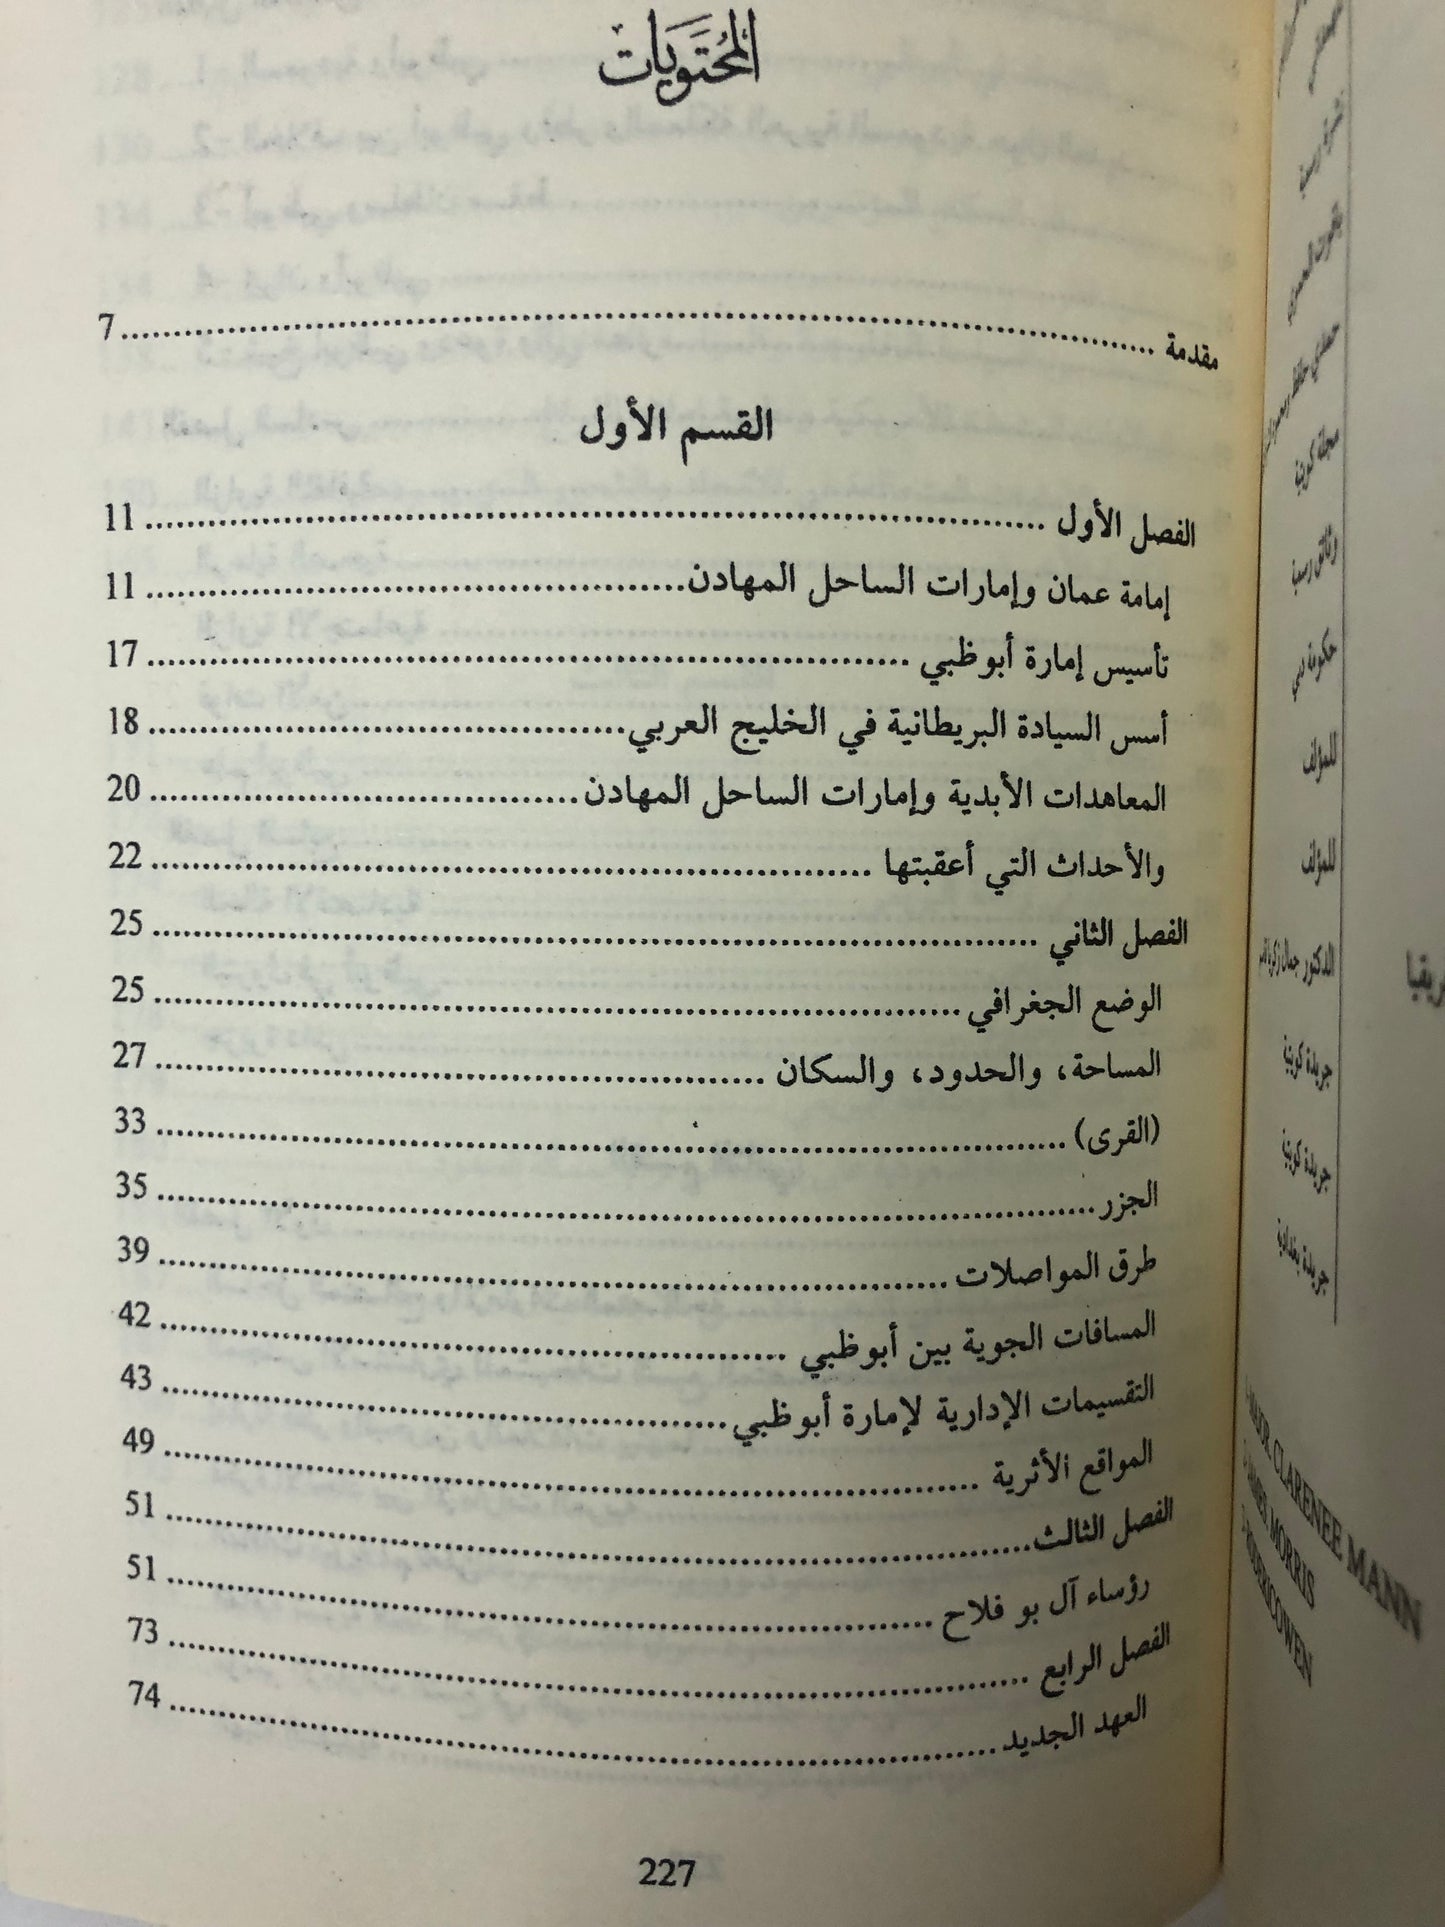 المحتويات
مقدمة ........ 7
القسم الأول
الفصل الأول ........ 11
إمامة عمان وإمارات الساحل المهادن ........ 11
تأسيس إمارة أبوظبي ........ 17
أسس السيادة البريطانية في الخليج العربي ........ 18
المعاهدات الأبدية وإمارات الساحل المهادن ........ 20
والأحداث التي أعقبتها ........ 22
الفصل الثاني ........ 25
الوضع الجغرافي ........ 25
المساحة، والحدود، والسكان ........ 27
(القرى) ........ 33
الجزر ........ 35
طرق المواصلات ........ 39
المسافات الجوية بين أبوظبي ........ 42
التقسيمات الإدارية لإمارة أبوظبي ........ 43
المواقع الأثرية ........ 49
الفصل الثالث ........ 51
رؤساء آل بو فلاح ........ 51
الفصل الرابع ........ 73
العهد الجديد ........ 74
227
مجلة كويتية
وثائق رسمية
حكومة دبي
للمؤلف
للمؤلف
الدكتور جمال زكريا
جريدة كويتية
جريدة كويتية
جريدة بغدادية
CLARENEE MANN
MORRIS